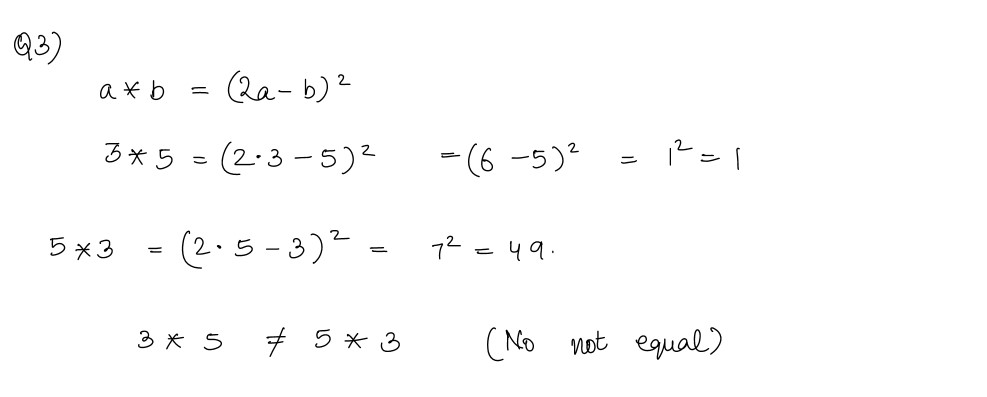 Q3)
a * b = (2a - b)²
3 * 5 = (2·3 - 5)² = (6 - 5)² = 1² = 1
5 * 3 = (2· 5 - 3)² = 7² = 49.
3 * 5 ≠ 5 * 3 (No not equal)